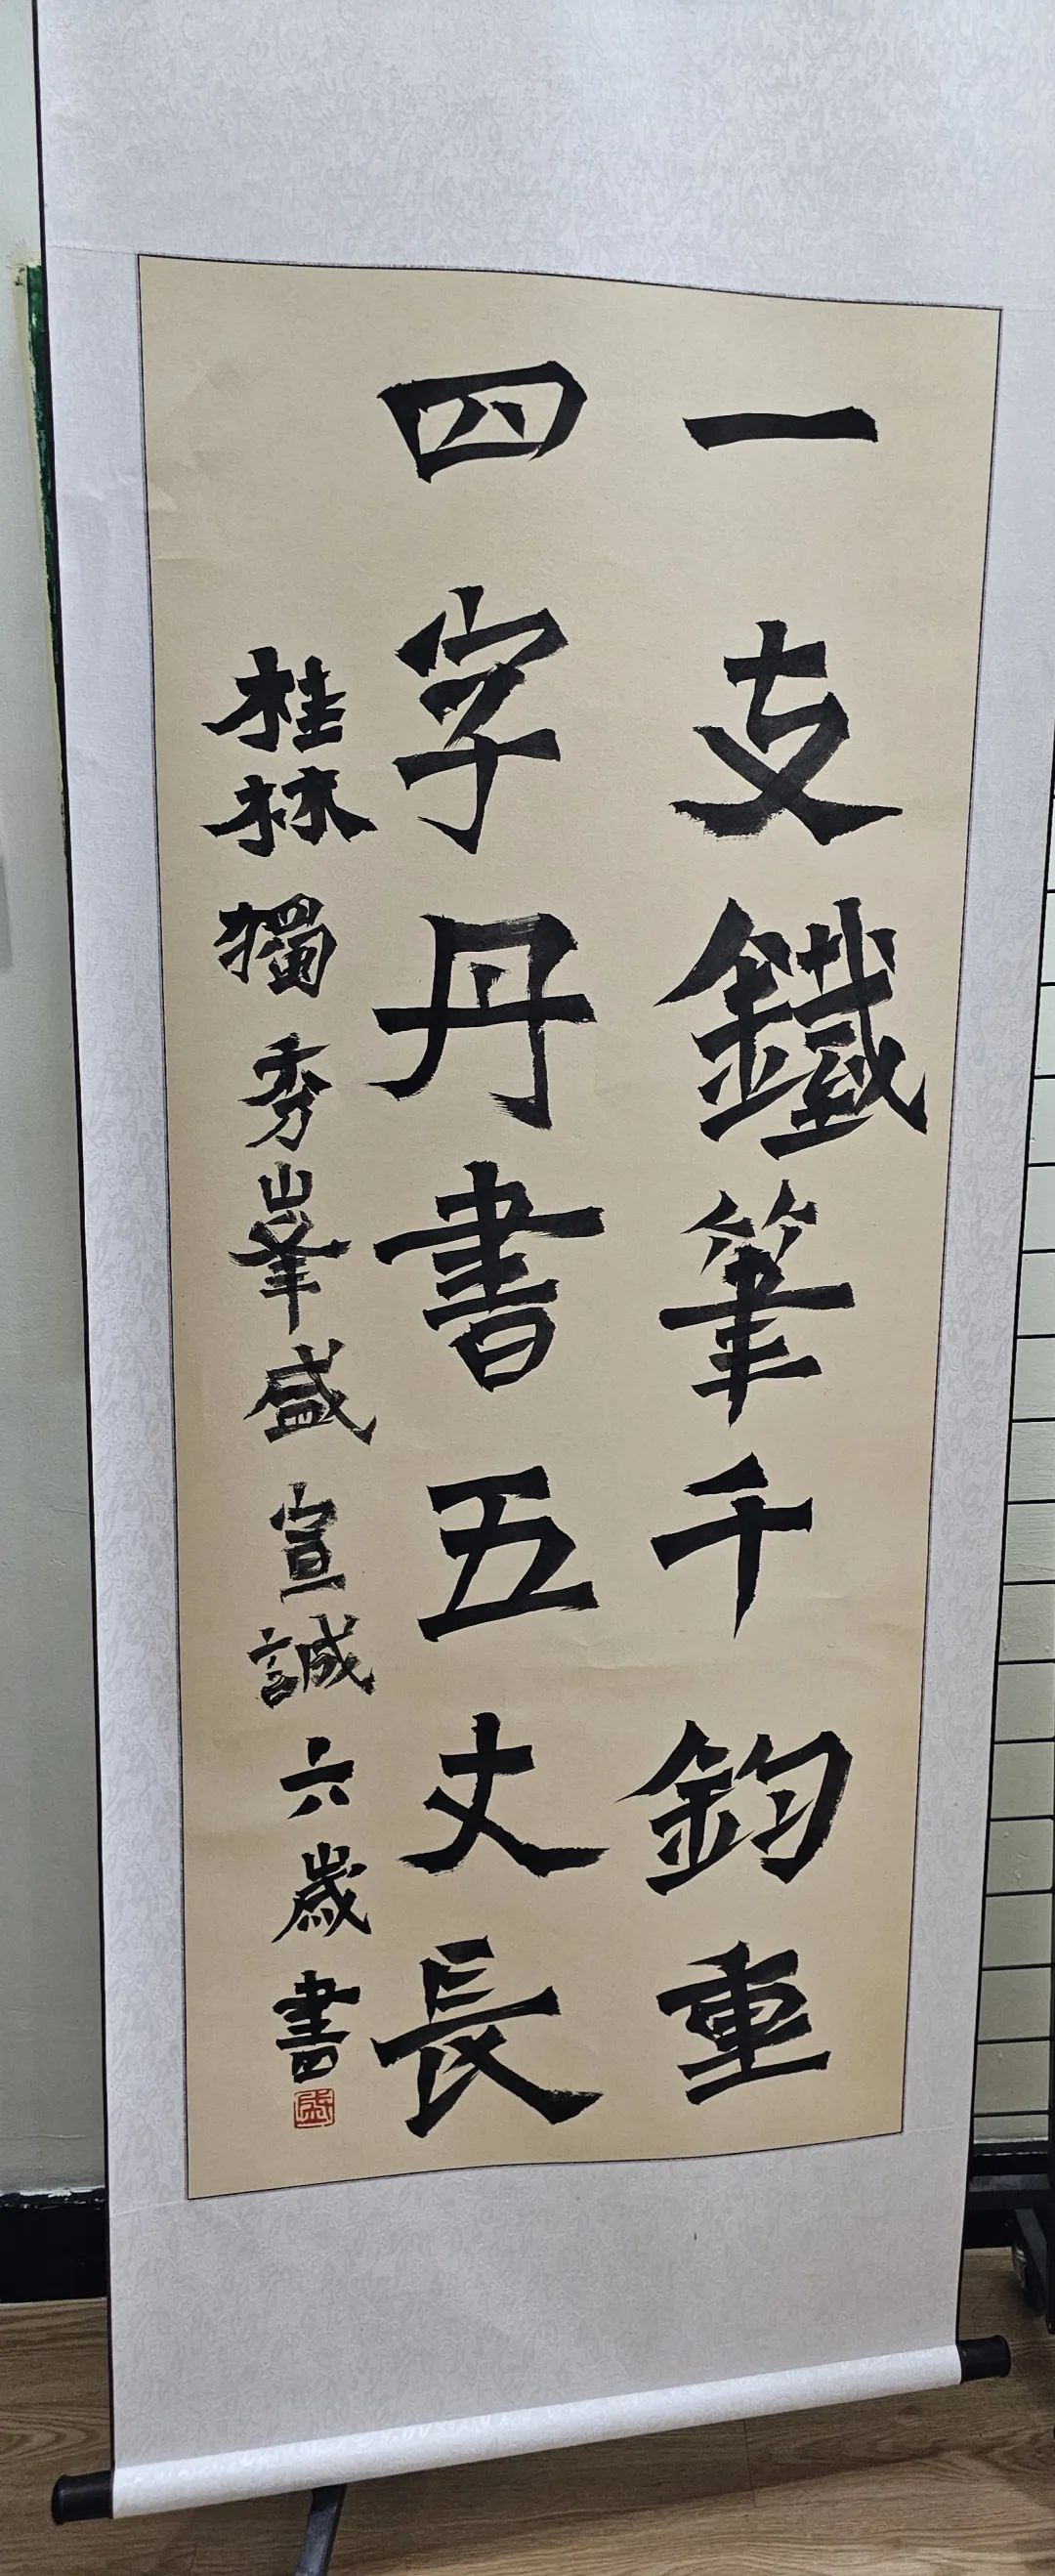 一支鐵筆千鈞重
四字丹書五丈長
桂林獨秀峯盛宣誠六歲書
盛